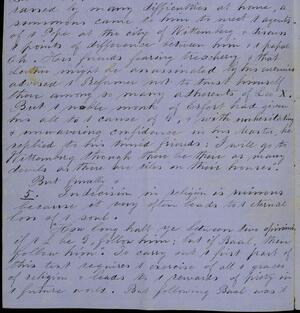 raised by many difficulties at home, a
summons came to him to meet agents
of Pope at the city of Wittemberg & discuss
points of difference between him & papal
Ch. His friends fearing treachery & that
Luther might be assassinated by his enemies
advised Reformer not to trust himself
there among so many adherents of Leo X.
But monk of Erfurt had given
his all to cause of & with unhesitating
& unwavering confidence in his Master, he
replied to his timid friends: I will go to
Wittemberg though there be there as many
devils as there are tiles on their houses.
But finally,
5. Indecision in religion is ruinous
because it very often leads to eternal
loss of soul.
How long halt ye between two opinions,
if L be G, follow him; but if Baal, then
follow him. To carry out first part of
this text requires exercise of all graces
of religion & leads to rewards of piety in
future world. But following Baal was